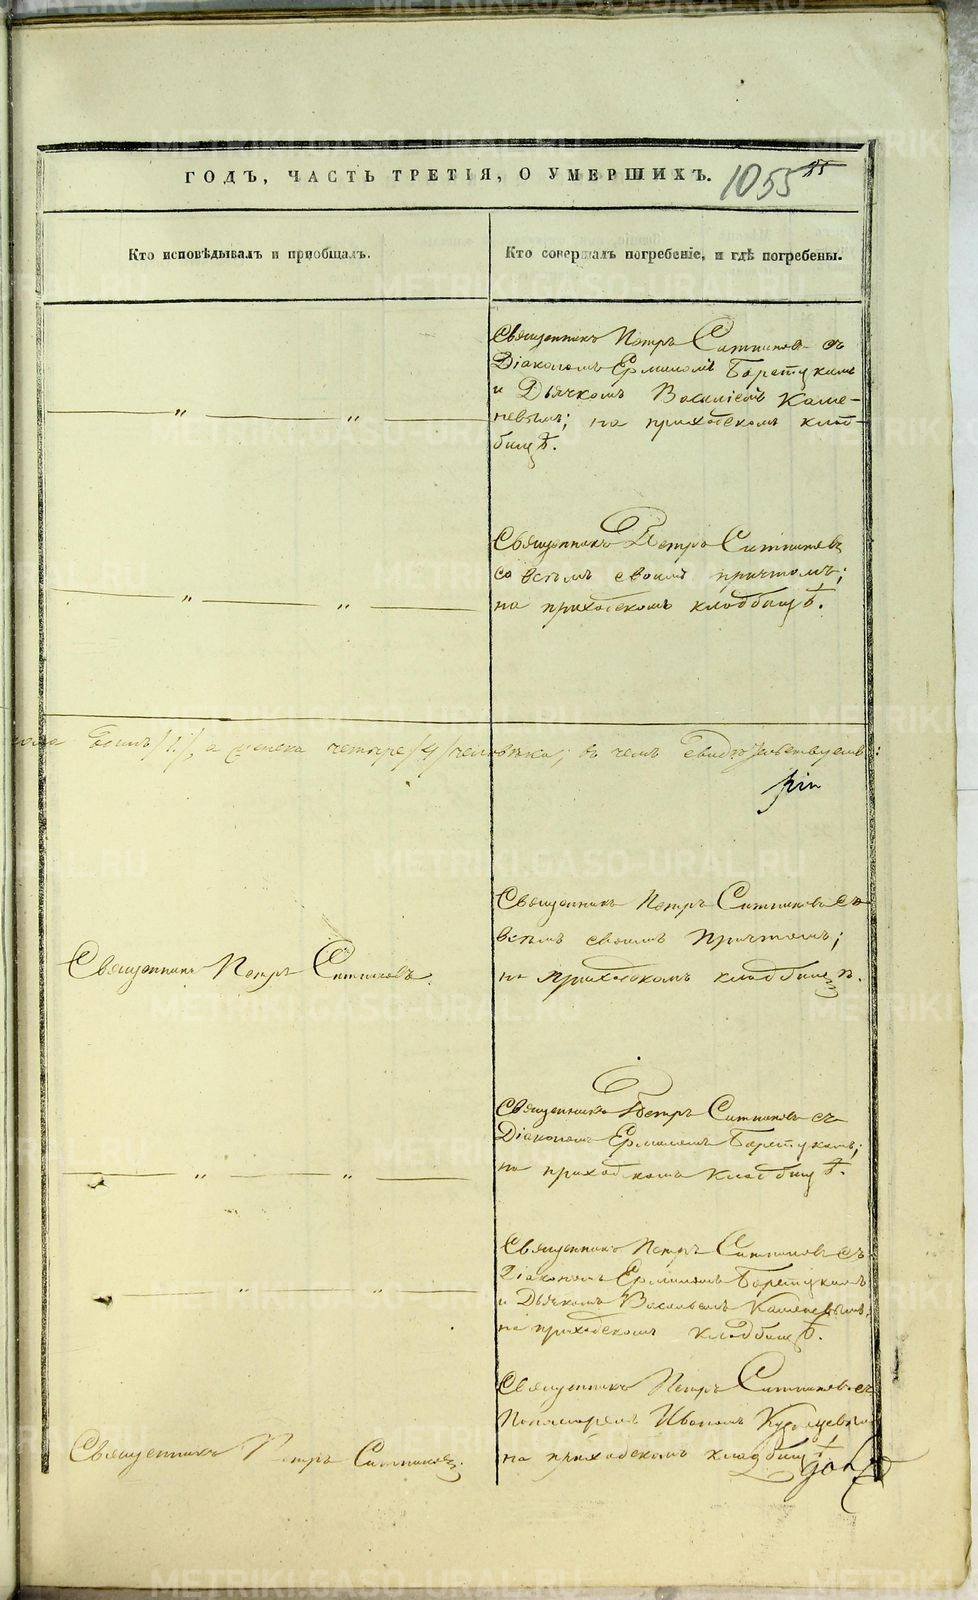 ГОДЪ, ЧАСТЬ ТРЕТІЯ, О УМЕРШИХЪ.
1055
Кто исповѣдывалъ и пріобщалъ.
Кто совершалъ погребеніе, и гдѣ погребены.
Священникъ Петръ Ситниковъ съ
Діакономъ Ермиломъ
и Дьячкомъ Василіемъ Каме-
невымъ; на приходскомъ клад-
бищѣ.
Священникъ Петръ Ситниковъ
со всѣмъ своимъ причтомъ;
на приходскомъ кладбищѣ.
а женска четыре /4/ человѣка; въ чемъ свидѣтельствуемъ:
Священникъ Петръ Ситниковъ.
Священникъ Петръ Ситниковъ съ
всѣмъ своимъ Причтомъ;
на приходскомъ кладбищѣ.
Священникъ Петръ Ситниковъ съ
Діакономъ Ермиломъ
на приходскомъ кладбищѣ.
Священникъ Петръ Ситниковъ съ
Діакономъ Ермиломъ
и Дьячкомъ Васильемъ Каменевымъ,
на приходскомъ кладбищѣ.
Священникъ Петръ Ситниковъ.
Священникъ Петръ Ситниковъ съ
Пономаремъ Иваномъ
на приходскомъ кладбищѣ
METRIKI.GASO-URAL.RU